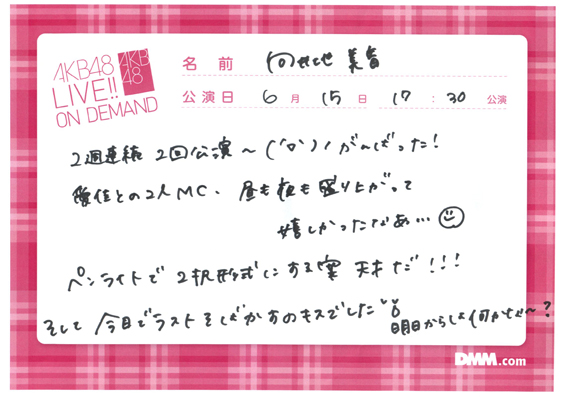 AKB48
LIVE!!
ON DEMAND
AKB
48
名前 向井地 美音
公演日 6月 15日 17:30 公演
2週連続 2回公演〜('か')ノ がんばった!
との2人MC、昼も夜も盛り上がって
嬉しかったなあ…
ペンライトで2択形式にする案 天才だ!!!
そして 今日でラスト そばかすのキスでした
明日からは何かな〜?
DMM.com